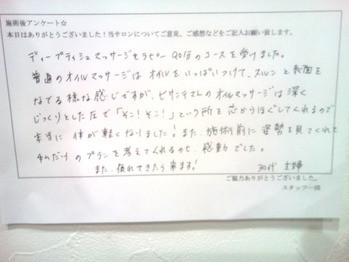 施術後アンケート☆
本日はありがとうございました！当サロンについてご意見、ご感想などをご記入お願い致します。
ディープティシュマッサージセラピー90分のコースを受けました。
普通のオイルマッサージは オイルをいっぱいつけて、スルンと表面を
なでる様な感じですが、ピサンチスムのオイルマッサージは深く
じっくりとした圧で「そこ！そこ！」という所を芯からほぐしてくれるので
本当に 体が軽くなりました！また、施術前に姿勢を見てくれて
それだけのプランを考えてくれるのも、感動でした。
また、疲れてきたら来ます！ 30代 主婦
ご協力ありがとうございました。
スタッフ一同